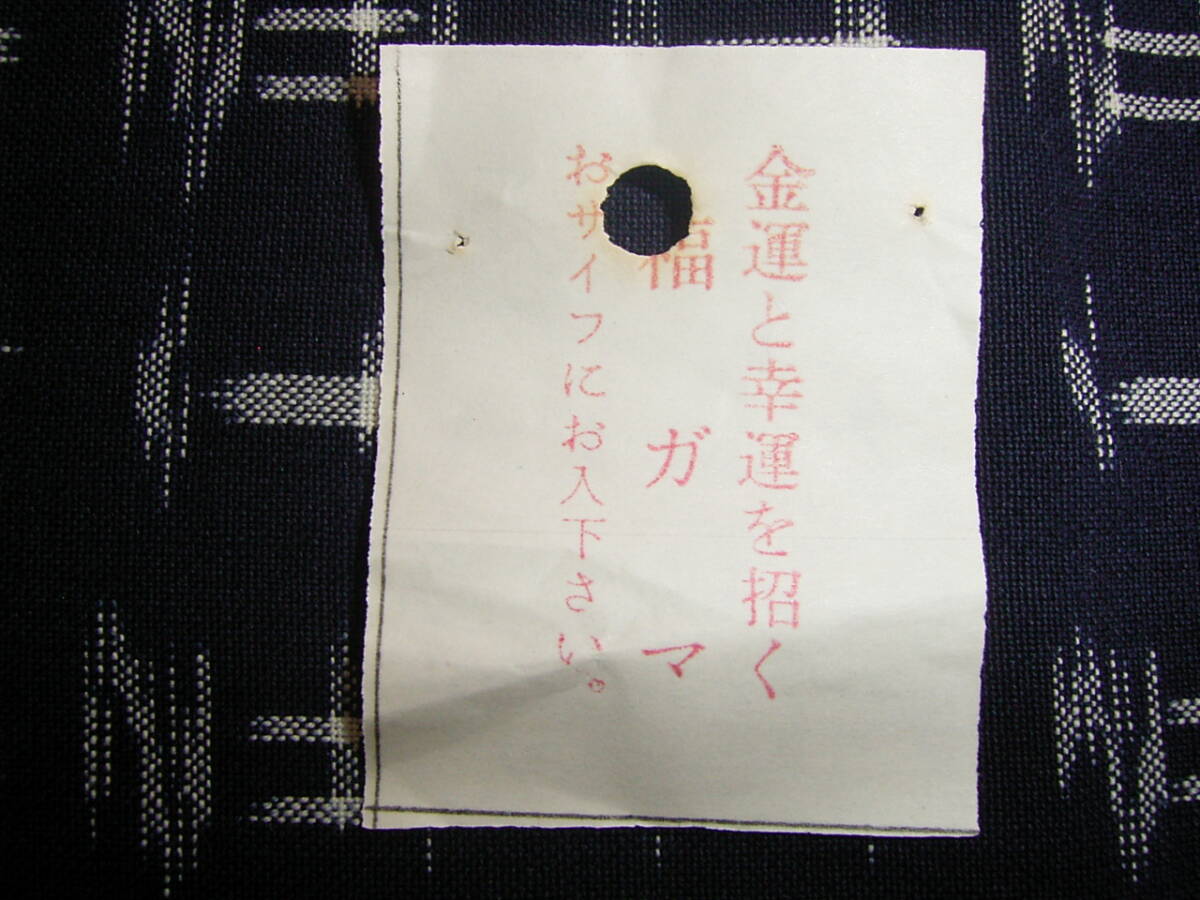 金運と幸運を招く
福ガマ
おサイフにお入下さい。